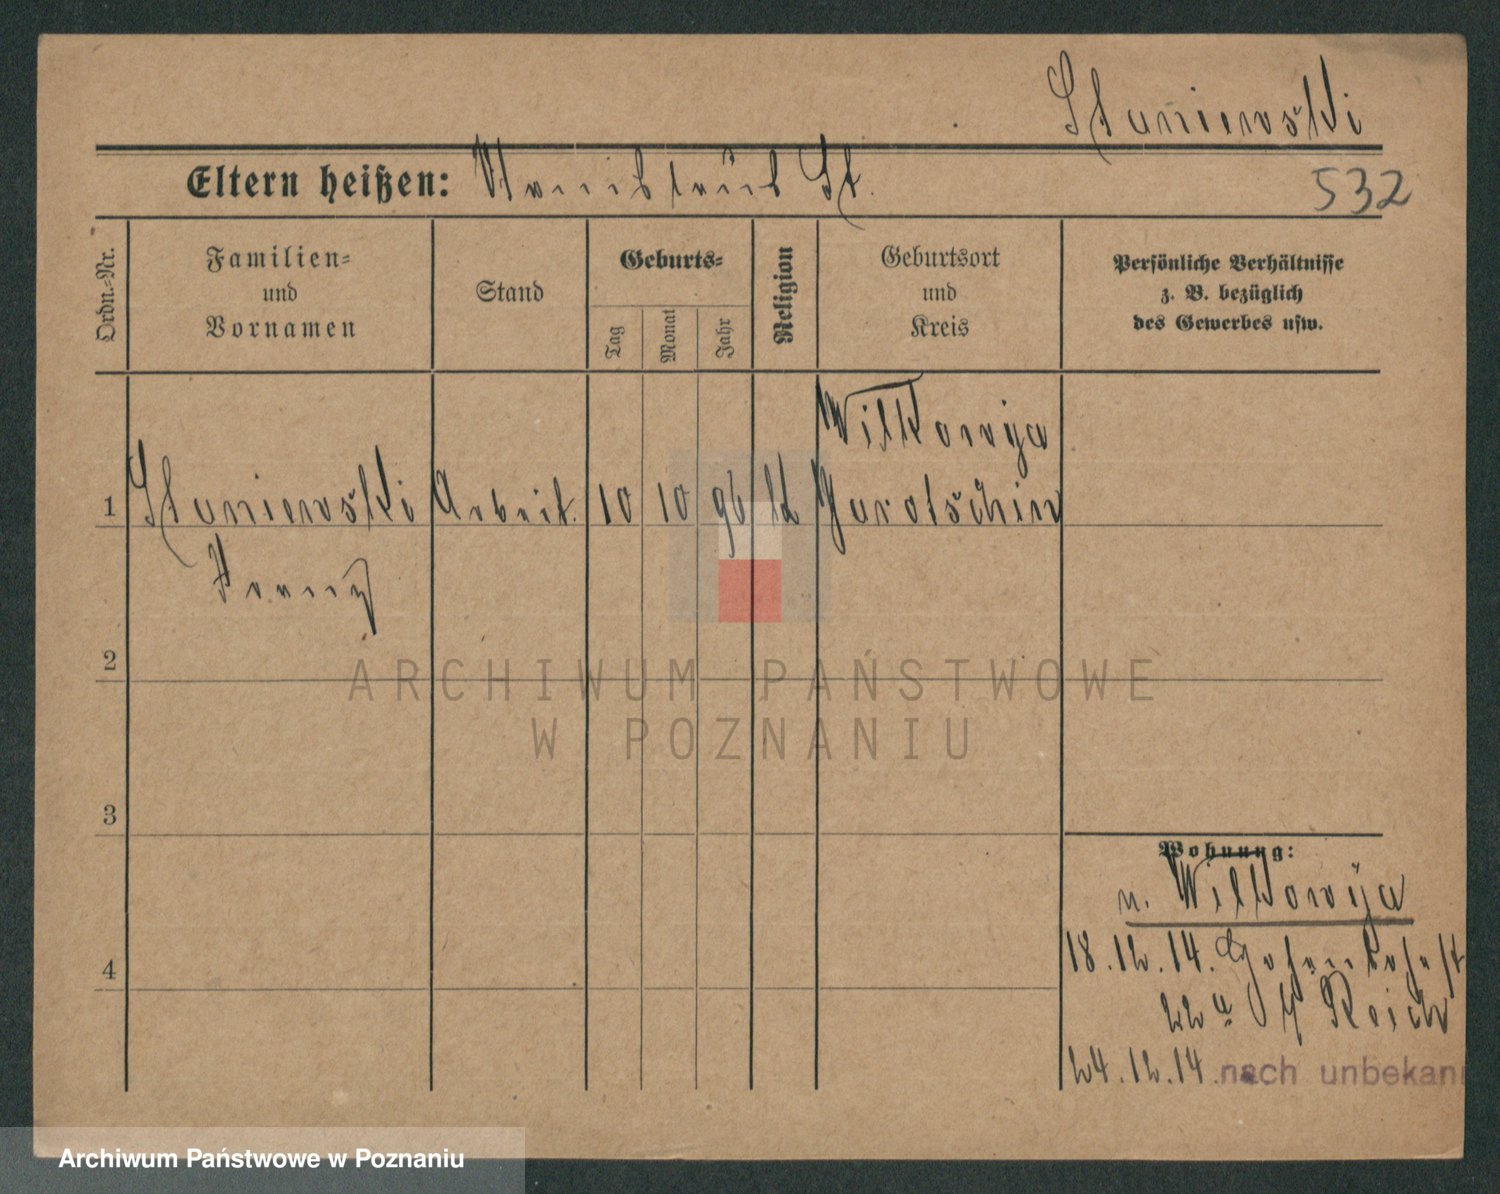 Staniewski
Eltern heißen:
532
Ordn.-Nr.
Familien-
und
Vornamen
Stand
Geburts-
Tag
Monat
Jahr
Religion
Geburtsort
und
Kreis
Persönliche Verhältnisse
z. B. bezüglich
des Gewerbes usw.
Wilkowija
1 Staniewski Arbeit. 10 10 96 kt Jarotschin
Franz
2
3
Wohnung:
n. Wilkowija
18.12.14.
4
22a Reich
24.12.14. nach unbekan
ARCHIWUM PAŃSTWOWE
W POZNANIU
Archiwum Państwowe w Poznaniu